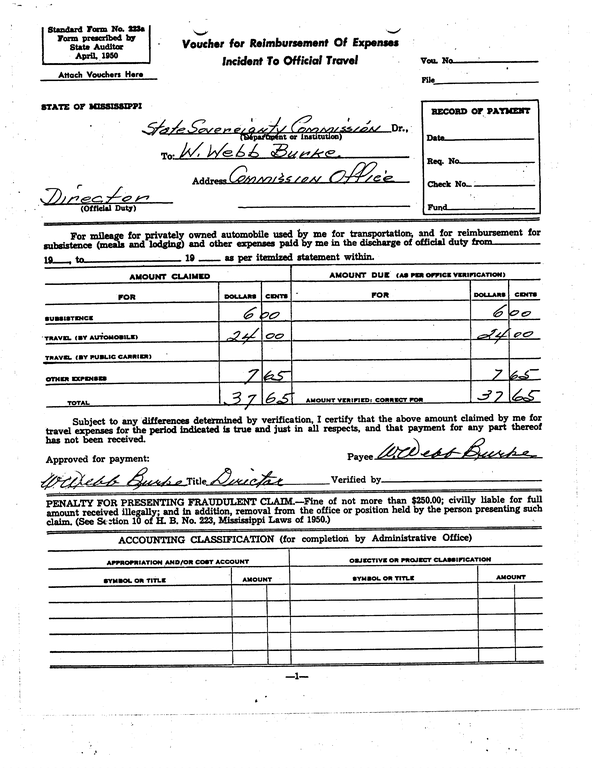 Standard Form No. 223a
Form prescribed by
State Auditor
April, 1950
Attach Vouchers Here
Voucher for Reimbursement Of Expenses
Incident To Official Travel
Vou. No.
File
STATE OF MISSISSIPPI
State Sovereignty Commission Dr.,
(Department or Institution)
To: W. Webb Burke
Address Commission Office
Director
(Official Duty)
RECORD OF PAYMENT
Date
Req. No.
Check No.
Fund
For mileage for privately owned automobile used by me for transportation, and for reimbursement for
subsistence (meals and lodging) and other expenses paid by me in the discharge of official duty from
19 , to 19 as per itemized statement within.
AMOUNT CLAIMED AMOUNT DUE (AS PER OFFICE VERIFICATION)
FOR DOLLARS CENTS FOR DOLLARS CENTS
SUBSISTENCE 6 00 6 00
TRAVEL (BY AUTOMOBILE) 24 00 24 00
TRAVEL (BY PUBLIC CARRIER)
OTHER EXPENSES 7 65 7 65
TOTAL 37 65 AMOUNT VERIFIED: CORRECT FOR 37 65
Subject to any differences determined by verification, I certify that the above amount claimed by me for
travel expenses for the period indicated is true and just in all respects, and that payment for any part thereof
has not been received.
Approved for payment: Payee W. Webb Burke
W. Webb Burke Title Director Verified by
PENALTY FOR PRESENTING FRAUDULENT CLAIM.—Fine of not more than $250.00; civilly liable for full
amount received illegally; and in addition, removal from the office or position held by the person presenting such
claim. (See Section 10 of H. B. No. 223, Mississippi Laws of 1950.)
ACCOUNTING CLASSIFICATION (for completion by Administrative Office)
APPROPRIATION AND/OR COST ACCOUNT OBJECTIVE OR PROJECT CLASSIFICATION
SYMBOL OR TITLE AMOUNT SYMBOL OR TITLE AMOUNT
—1—